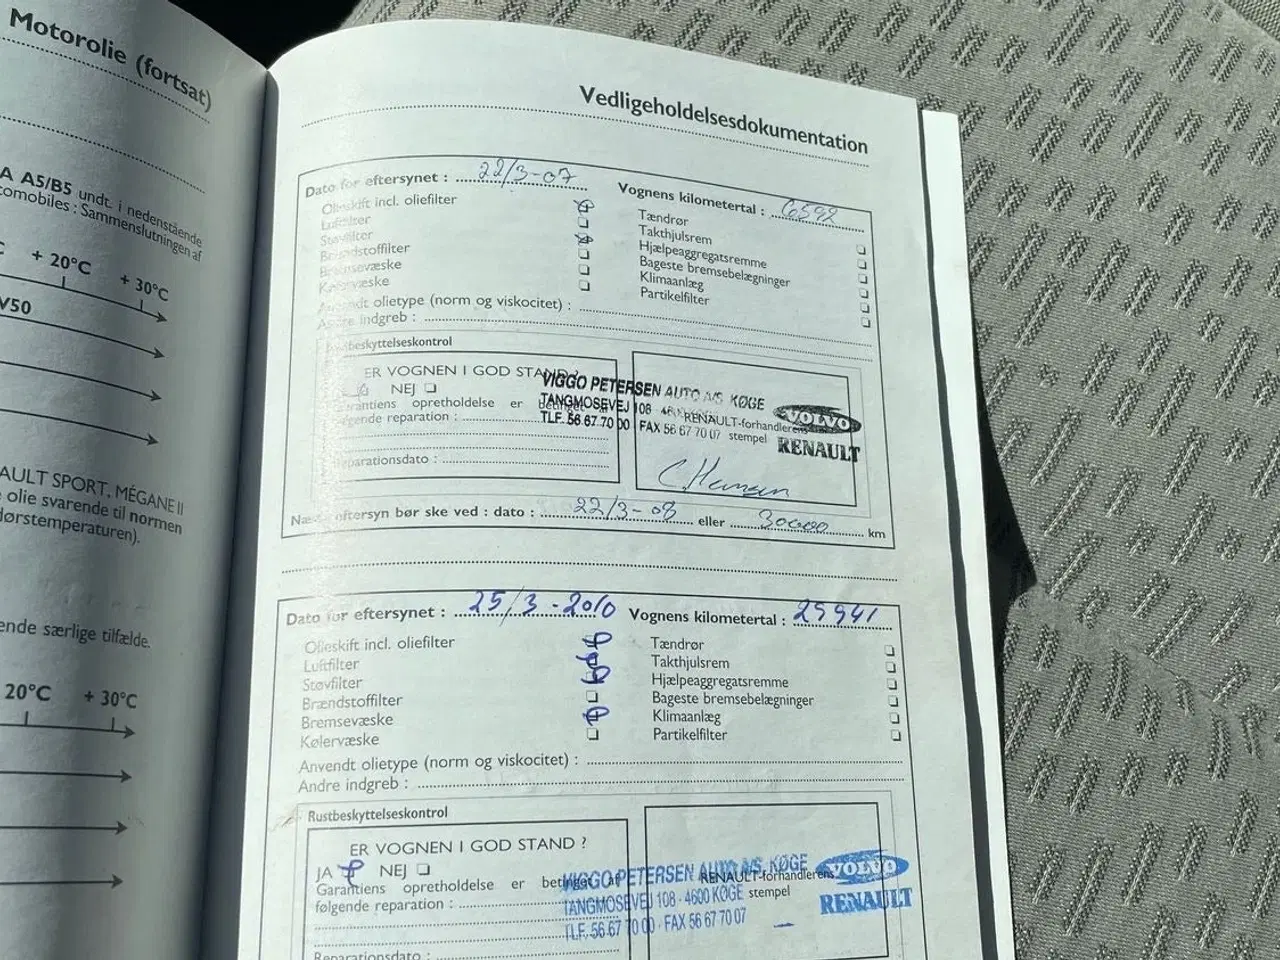 Motorolie (fortsat)
A A5/B5 undt. i nedenstående
omobiles : Sammenslutningen af
+ 20°C + 30°C
V50
AULT SPORT, MÉGANE II
olie svarende til normen
dørstemperaturen).
ende særlige tilfælde.
20°C + 30°C
Vedligeholdelsesdokumentation
Dato for eftersynet : 22/3-07 Vognens kilometertal : 6592
Olieskift incl. oliefilter Tændrør
Luftfilter Takthjulsrem
Støvfilter Hjælpeaggregatsremme
Brændstoffilter Bageste bremsebelægninger
Bremsevæske Klimaanlæg
Kølervæske Partikelfilter
Anvendt olietype (norm og viskocitet) :
Andre indgreb :
Rustbeskyttelseskontrol
ER VOGNEN I GOD STAND ?
NEJ
Garantiens opretholdelse er betinget
følgende reparation :
Reparationsdato :
VIGGO PETERSEN AUTO A/S. KØGE
TANGMOSEVEJ 108
TLF. 56 67 70 00 FAX 56 67 70 07
RENAULT-forhandlerens
stempel
VOLVO
RENAULT
Næste eftersyn bør ske ved : dato : 22/3-08 eller 30000 km
Dato for eftersynet : 25/3-2010 Vognens kilometertal : 29941
Olieskift incl. oliefilter Tændrør
Luftfilter Takthjulsrem
Støvfilter Hjælpeaggregatsremme
Brændstoffilter Bageste bremsebelægninger
Bremsevæske Klimaanlæg
Kølervæske Partikelfilter
Anvendt olietype (norm og viskocitet) :
Andre indgreb :
Rustbeskyttelseskontrol
ER VOGNEN I GOD STAND ?
JA NEJ
Garantiens opretholdelse er betinget af
følgende reparation :
Reparationsdato :
VIGGO PETERSEN AUTO A/S. KØGE
TANGMOSEVEJ 108 - 4600 KØGE
TLF. 56 67 70 00 - FAX 56 67 70 07
RENAULT-forhandlerens
stempel
VOLVO
RENAULT